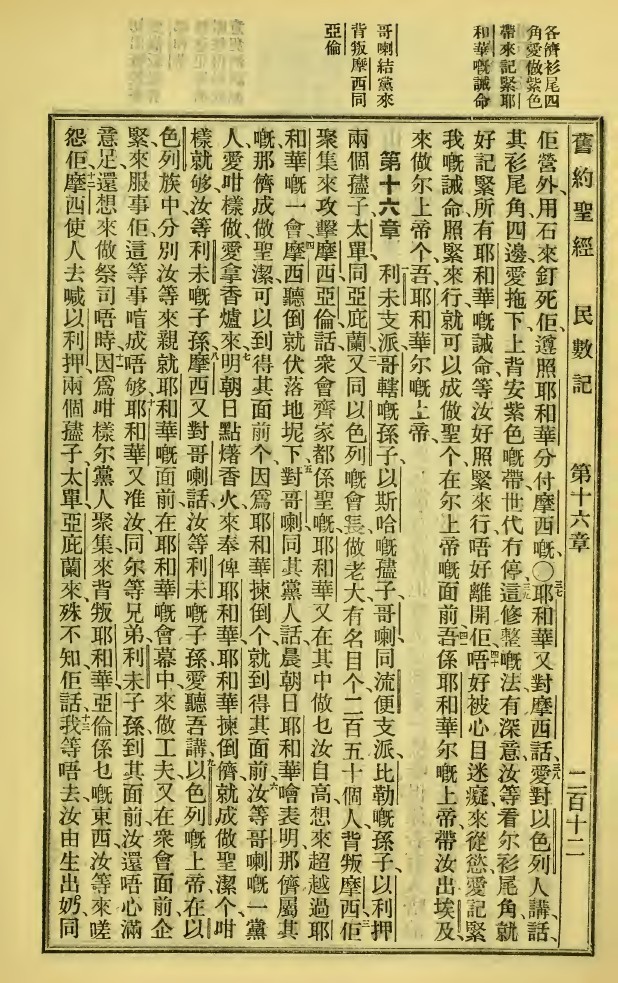 各儕衫尾四
角愛做紫色
帶來記緊耶
和華嘅誡命
哥喇結黨來
背叛摩西同
亞倫
舊約聖經 民數記 第十六章 二百十二
佢營外、用石來釘死佢、遵照耶和華分付摩西嘅、〇三七耶和華又對摩西話、三八愛對以色列人講話、
其衫尾角四邊、愛拖下、上背安紫色嘅帶、世代冇停、三九這修整嘅法有深意、汝等看尔衫尾角、就
好記緊所有耶和華嘅誡命、等汝好照緊來行、唔好離開佢、唔好被心目迷癡來從慾、四十愛記緊
我嘅誡命、照緊來行、就可以成做聖个、在尔上帝嘅面前、四一吾係耶和華尔嘅上帝、帶汝出埃及、
來做尔上帝个、吾耶和華尔嘅上帝、
第十六章 利未支派、哥轄嘅孫子、以斯哈嘅孻子、哥喇、同流便支派、比勒嘅孫子、以利押
兩個孻子、太單同亞庇蘭、二又同以色列嘅會長、做老大有名目个二百五十個人、背叛摩西、三佢
聚集來攻擊摩西亞倫、話、衆會齊家都係聖嘅、耶和華又在其中、做乜汝自高、想來超越過耶
和華嘅一會、四摩西聽倒、就伏落地坭下、五對哥喇同其黨人話、晨朝日耶和華噲表明、那儕屬其
嘅、那儕成做聖潔、可以到得其面前个、因爲耶和華揀倒个、就到得其面前、六汝等哥喇嘅一黨
人、愛咁樣做、愛拿香爐來、七明朝日點𤏸香火、來奉俾耶和華、耶和華揀倒儕、就成做聖潔个、咁
樣就够、汝等利未嘅子孫、八摩西又對哥喇話、汝等利未嘅子孫、愛聽吾講、九以色列嘅上帝、在以
色列族中、分別汝等來親就耶和華嘅面前、在耶和華嘅會幕中來做工夫、又在衆會面前、企
緊來服事佢、這等事喑成唔够、十耶和華又准汝、同尔等兄弟、利未子孫、到其面前、汝還唔心滿
意足、還想來做祭司唔時、十一因爲咁樣尔黨人聚集、來背叛耶和華、亞倫係乜嘅東西、汝等來嗟
怨佢、十二摩西使人去喊以利押兩個孻子、太單亞庇蘭來、殊不知佢話、我等唔去、十三汝由生出奶同